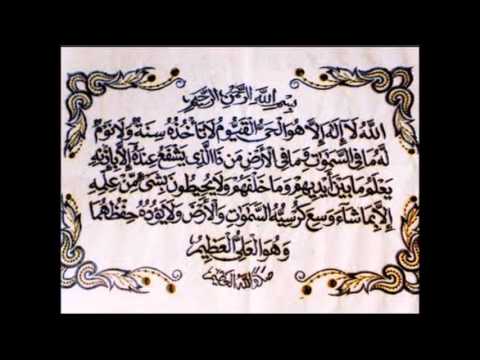 بسم الله الرحمن الرحيم
الله لا إله إلا هو الحي القيوم لا تأخذه سنة ولا نوم
له ما في السموت وما في الأرض من ذا الذي يشفع عنده إلا بإذنه
يعلم ما بين أيديهم وما خلفهم ولا يحيطون بشئ من علمه
إلا بما شاء وسع كرسيه السموت والأرض ولا يؤده حفظهما
وهو العلي العظيم
صدق الله العظيم